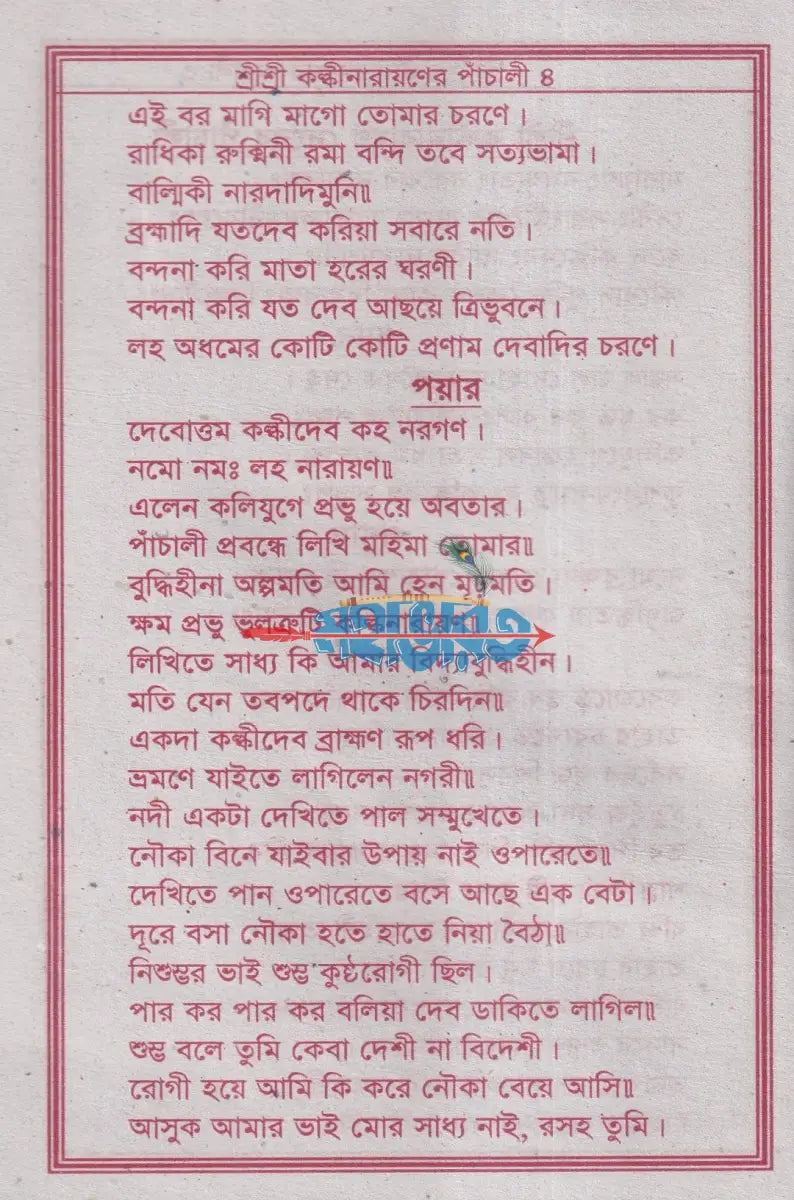 শ্রীশ্রী কল্কীনারায়ণের পাঁচালী ৪
এই বর মাগি মাগো তোমার চরণে।
রাধিকা রুক্মিনী রমা বন্দি তবে সত্যভামা।
বাল্মিকী নারদাদিমুনি॥
ব্রহ্মাদি যতদেব করিয়া সবারে নতি।
বন্দনা করি মাতা হরের ঘরণী।
বন্দনা করি যত দেব আছয়ে ত্রিভুবনে।
লহ অধমের কোটি কোটি প্রণাম দেবাদির চরণে।
পয়ার
দেবোত্তম কল্কীদেব কহ নরগণ।
নমো নমঃ লহ নারায়ণ॥
এলেন কলিযুগে প্রভু হয়ে অবতার।
পাঁচালী প্রবন্ধে লিখি মহিমা তোমার॥
বুদ্ধিহীনা অল্পমতি আমি হেন মূঢ়মতি।
ক্ষম প্রভু ভুলত্রুটি কল্কিনারায়ণ॥
লিখিতে সাধ্য কি আমার বিদ্যাবুদ্ধিহীন।
মতি যেন তবপদে থাকে চিরদিন॥
একদা কল্কীদেব ব্রাহ্মণ রূপ ধরি।
ভ্রমণে যাইতে লাগিলেন নগরী॥
নদী একটা দেখিতে পাল সম্মুখেতে।
নৌকা বিনে যাইবার উপায় নাই ওপারেতে॥
দেখিতে পান ওপারেতে বসে আছে এক বেটা।
দূরে বসা নৌকা হতে হাতে নিয়া বৈঠা॥
নিশুম্ভর ভাই শুম্ভ কুষ্ঠরোগী ছিল।
পার কর পার কর বলিয়া দেব ডাকিতে লাগিল॥
শুম্ভ বলে তুমি কেবা দেশী না বিদেশী।
রোগী হয়ে আমি কি করে নৌকা বেয়ে আসি॥
আসুক আমার ভাই মোর সাধ্য নাই, রসহ তুমি।